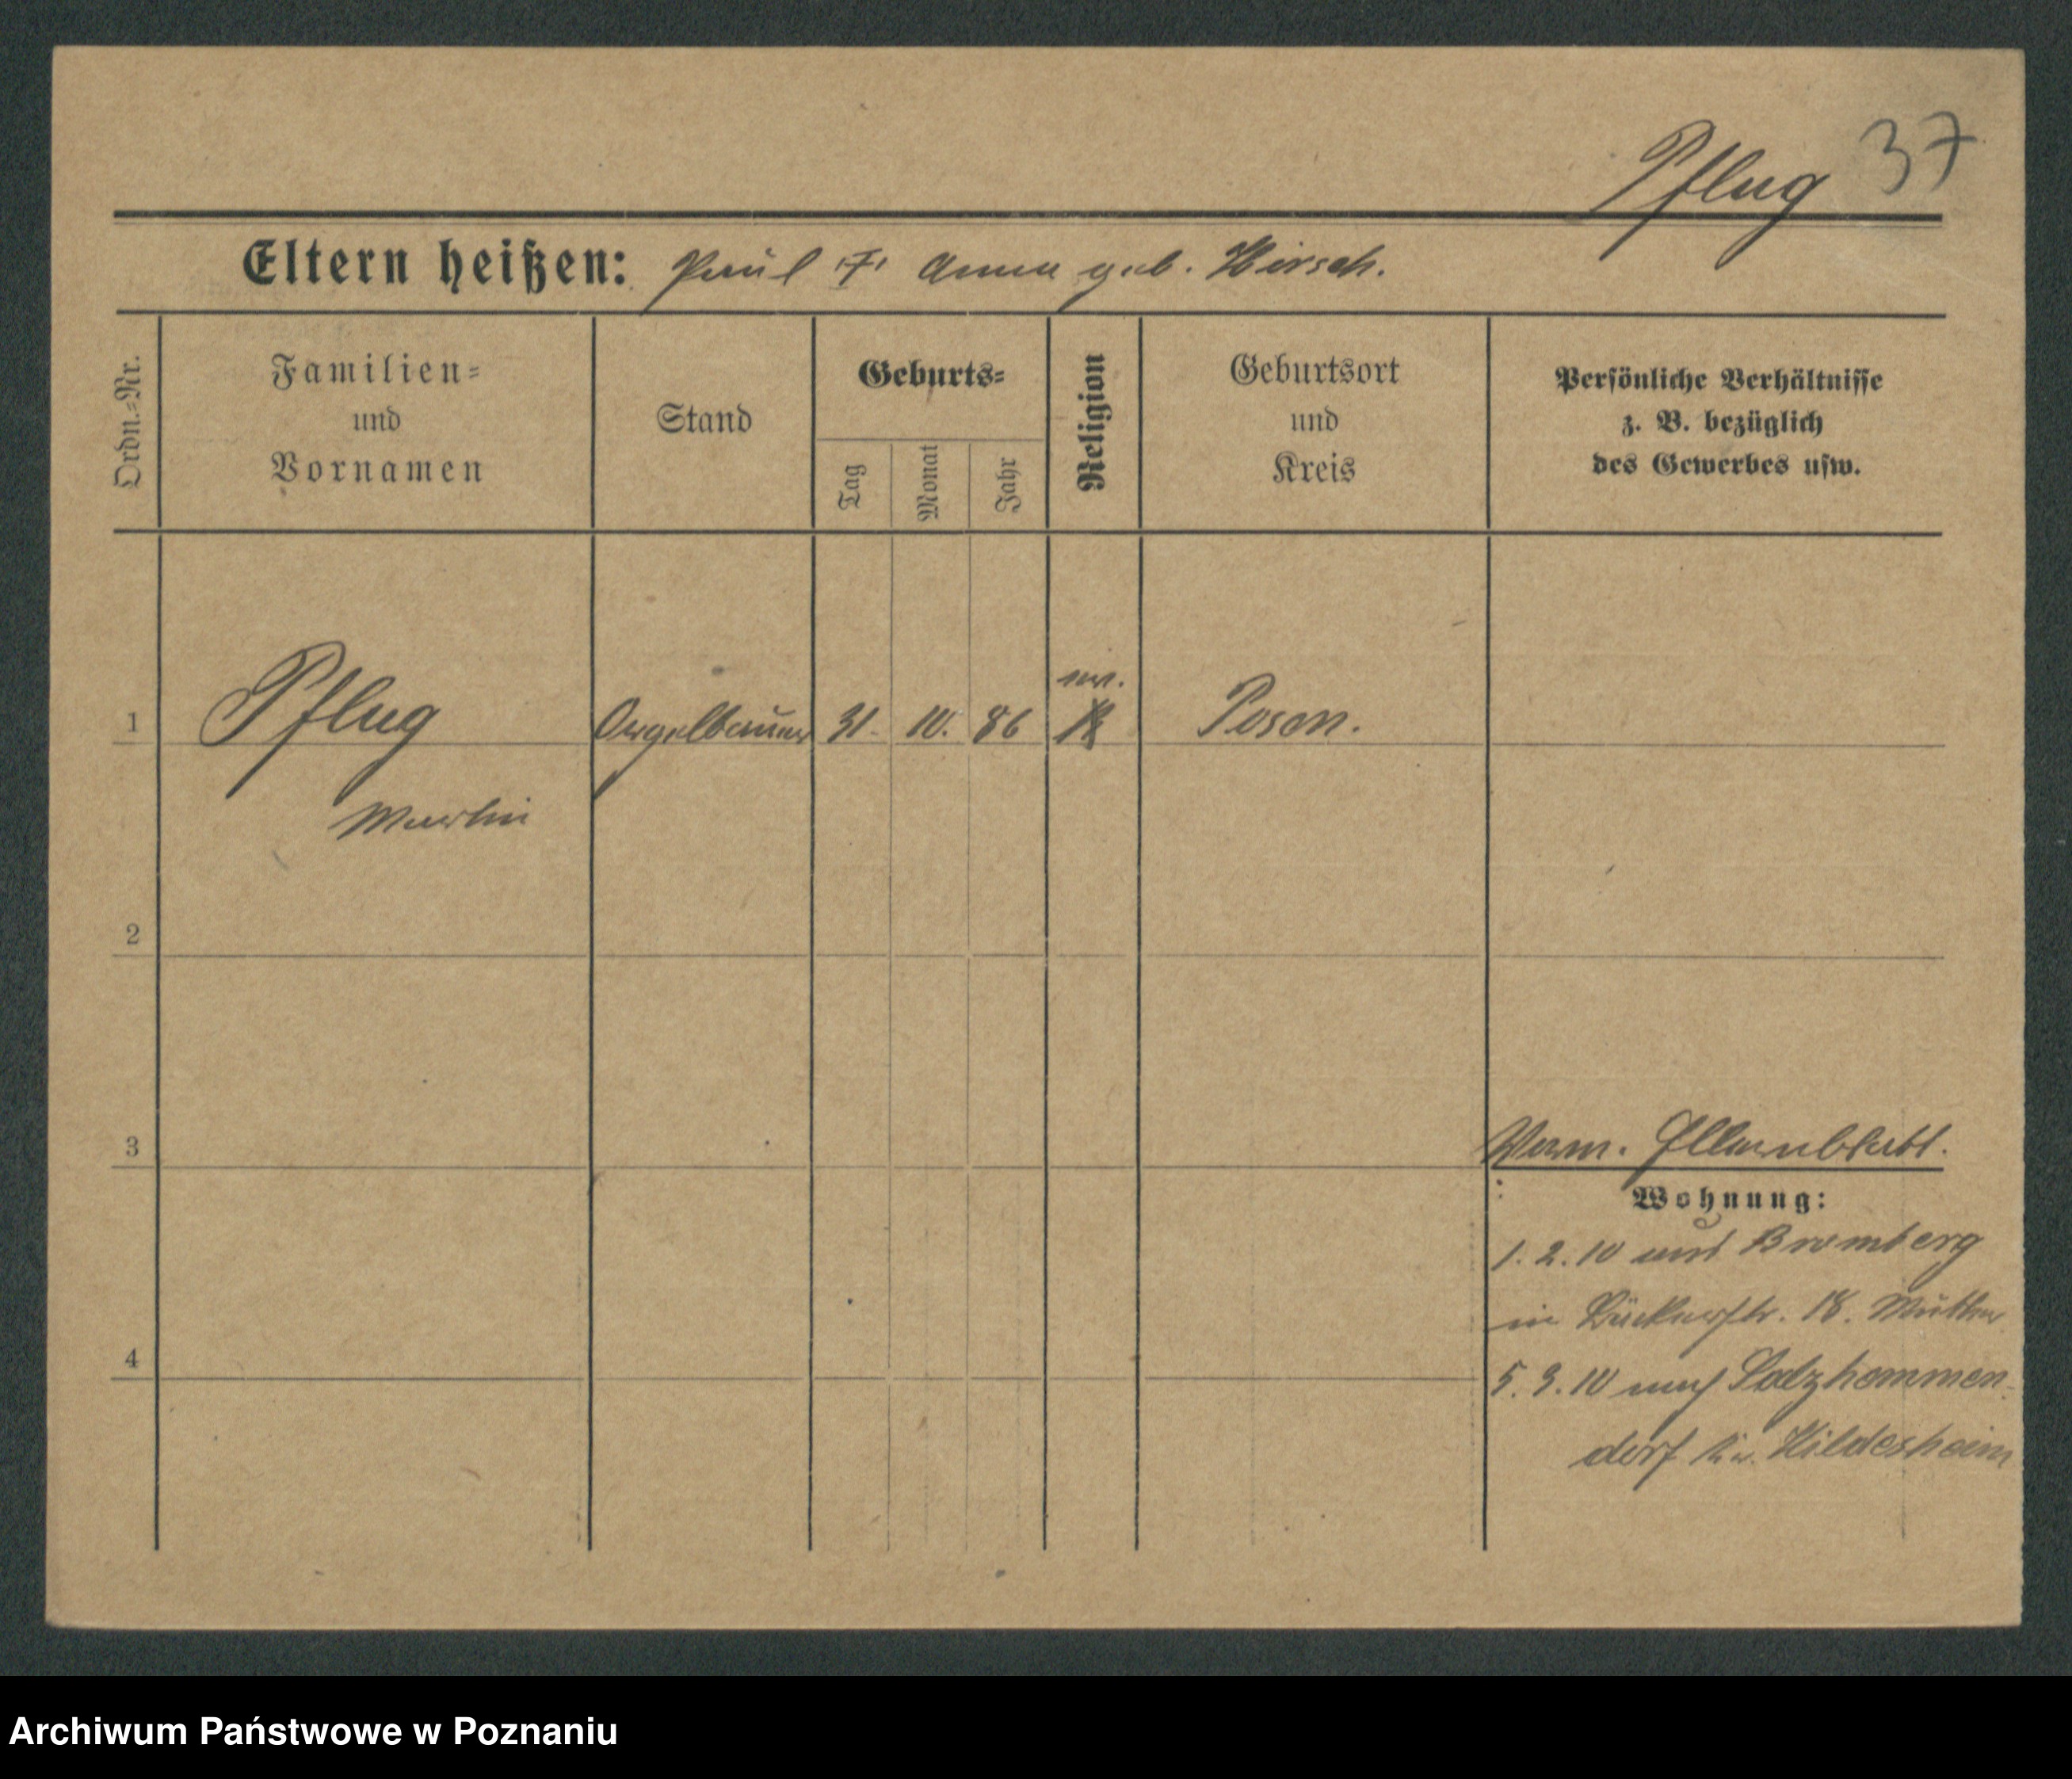 Pflug 37
Eltern heißen: Paul † Anna geb. Hirsch.
Ordn.-Nr.
Familien-
und
Vornamen
Stand
Geburts-
Tag
Monat
Jahr
Religion
Geburtsort
und
Kreis
Persönliche Verhältnisse
z. B. bezüglich
des Gewerbes usw.
ev.
1 Pflug Orgelbauer 31. 10. 86 K Posen.
Martin
2
3
Verm. Elternblatt.
Wohnung:
1. 2. 10 aus Bromberg
in Bäckerstr. 18. Mutter
4
5. 3. 10 nach Salzhemmen-
dorf Kr. Hildesheim
Archiwum Państwowe w Poznaniu